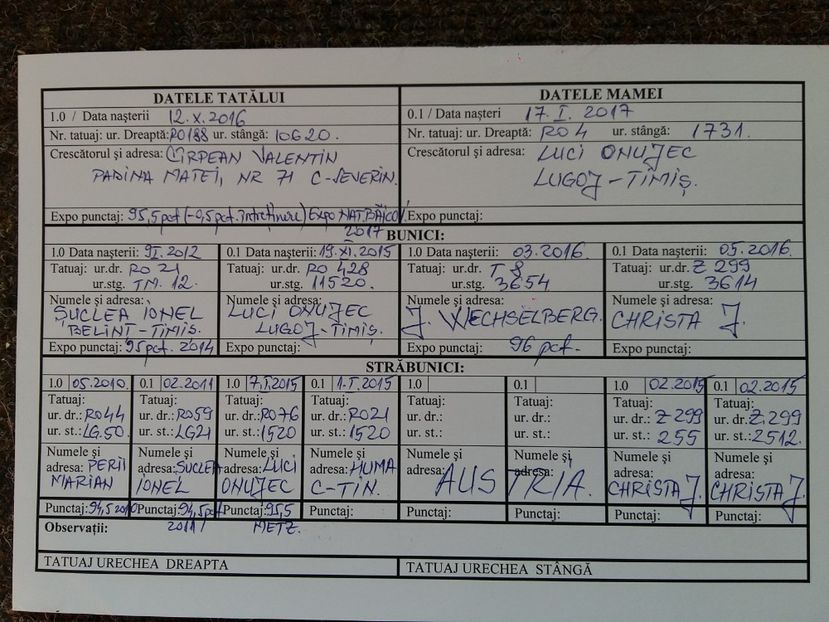 DATELE TATĂLUI
1.0 / Data nașterii 12.X.2016
Nr. tatuaj: ur. Dreaptă: RO188 ur. stângă: 10620.
Crescătorul și adresa: CÎRPEAN VALENTIN
PADINA MATEI, NR 71 C-SEVERIN.
Expo punctaj: 95,5pct (-0,5pct. întreținere) Expo NAT. BĂICOI
2017
DATELE MAMEI
0.1 / Data nașteri 17.I.2017
Nr. tatuaj: ur. Dreaptă: RO4 ur. stângă: 1731.
Crescătorul și adresa: LUCI ONUJEC
LUGOJ-TIMIȘ.
Expo punctaj:
BUNICI:
1.0 Data nașterii: 9I.2012
Tatuaj: ur.dr. RO 21
ur.stg. TM. 12.
Numele și adresa:
ȘUCLEA IONEL
BELINT-TIMIȘ.
Expo punctaj: 95pct. 2014
0.1 Data nașterii: 19.XI.2015
Tatuaj: ur.dr. RO 428
ur.stg. 11520.
Numele și adresa:
LUCI ONUJEC
LUGOJ-TIMIȘ.
Expo punctaj:
1.0 Data nașterii: 03.2016.
Tatuaj: ur.dr. T 8
ur.stg. 3654
Numele și adresa:
J. WECHSELBERG.
Expo punctaj: 96 pct.
0.1 Data nașterii: 05.2016.
Tatuaj: ur.dr. Z 299
ur.stg. 3614
Numele și adresa:
CHRISTA J.
Expo punctaj:
STRĂBUNICI:
1.0 05.2010.
Tatuaj:
ur. dr.: RO44
ur. st.: LG.50.
Numele și
adresa: PERII
MARIAN
Punctaj: 94,5 2010
0.1 02.2011
Tatuaj:
ur. dr.: RO59
ur. st.: LG21
Numele și
adresa: SUCLEA
IONEL
Punctaj: 94,5pct
2011
1.0 7.I.2015
Tatuaj:
ur. dr.: RO76
ur. st.: 1520
Numele și
adresa: LUCI
ONUJEC
Punctaj: 95,5
METZ.
0.1 1-I.2015
Tatuaj:
ur. dr.: RO21
ur. st.: 1520
Numele și
adresa: HUMA
C-TIN.
Punctaj:
1.0
Tatuaj:
ur. dr.:
ur. st.:
Numele și
adresa:
0.1
Tatuaj:
ur. dr.:
ur. st.:
Numele și
adresa:
AUSTRIA.
Punctaj:
Punctaj:
1.0 02.2015
Tatuaj:
ur. dr.: Z 299
ur. st.: 255
Numele și
adresa:
CHRISTA J.
Punctaj:
0.1 02.2015
Tatuaj:
ur. dr.: Z.299
ur. st.: 2512.
Numele și
adresa:
CHRISTA J.
Punctaj:
Observații:
TATUAJ URECHEA DREAPTA
TATUAJ URECHEA STÂNGĂ